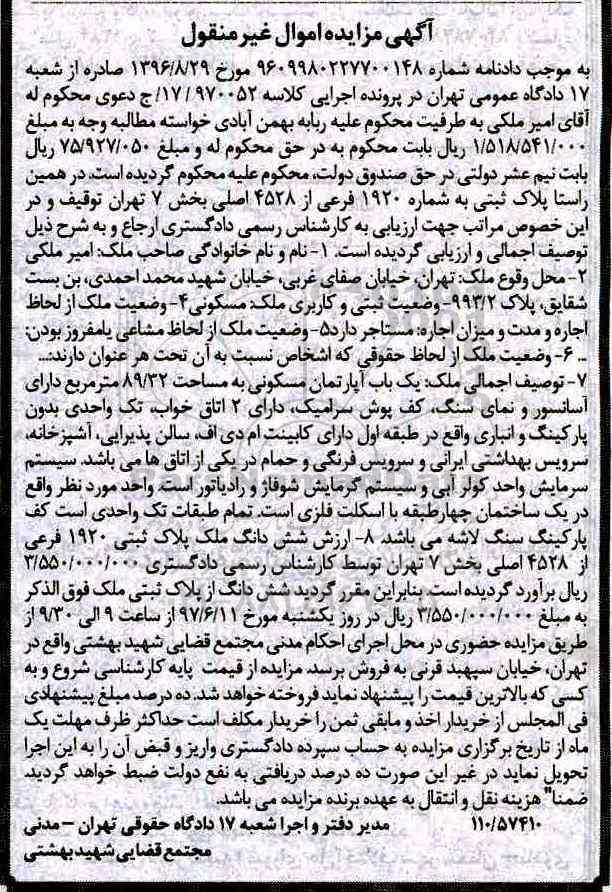 آگهی مزایده اموال غیر منقول
به موجب دادنامه شماره ۹۶۰۹۹۸۰۲۲۷۷۰۰۱۴۸ مورخ ۱۳۹۶/۸/۲۹ صادره از شعبه
۱۷ دادگاه عمومی تهران در پرونده اجرایی کلاسه ۹۷۰۰۵۲ / ۱۷/ ج دعوی محکوم له
آقای امیر ملکی به طرفیت محکوم علیه ربابه بهمن آبادی خواسته مطالبه وجه به مبلغ
۱/۵۱۸/۵۴۱/۰۰۰ ریال بابت محکوم به در حق محکوم له و مبلغ ۷۵/۹۲۷/۰۵۰ ریال
بابت نیم عشر دولتی در حق صندوق دولت، محکوم علیه محکوم گردیده است. در همین
راستا پلاک ثبتی به شماره ۱۹۲۰ فرعی از ۴۵۲۸ اصلی بخش ۷ تهران توقیف و در
این خصوص مراتب جهت ارزیابی به کارشناس رسمی دادگستری ارجاع و به شرح ذیل
توصیف اجمالی و ارزیابی گردیده است. ۱- نام و نام خانوادگی صاحب ملک: امیر ملکی
۲- محل وقوع ملک: تهران، خیابان صفای غربی، خیابان شهید محمد احمدی، بن بست
شقایق، پلاک ۹۹۳/۲- وضعیت ثبتی و کاربری ملک: مسکونی۴- وضعیت ملک از لحاظ
اجاره و مدت و میزان اجاره: مستاجر دارد۵- وضعیت ملک از لحاظ مشاعی یامفروز بودن:
... ۶- وضعیت ملک از لحاظ حقوقی که اشخاص نسبت به آن تحت هر عنوان دارند:...
۷- توصیف اجمالی ملک: یک باب آپارتمان مسکونی به مساحت ۸۹/۳۲ مترمربع دارای
آسانسور و نمای سنگ، کف پوش سرامیک، دارای ۲ اتاق خواب، تک واحدی بدون
پارکینگ و انباری واقع در طبقه اول دارای کابینت ام دی اف، سالن پذیرایی، آشپزخانه،
سرویس بهداشتی ایرانی و سرویس فرنگی و حمام در یکی از اتاق ها می باشد. سیستم
سرمایش واحد کولر آبی و سیستم گرمایش شوفاژ و رادیاتور است. واحد مورد نظر واقع
در یک ساختمان چهارطبقه با اسکلت فلزی است. تمام طبقات تک واحدی است کف
پارکینگ سنگ لاشه می باشد. ۸- ارزش شش دانگ ملک پلاک ثبتی ۱۹۲۰ فرعی
از ۴۵۲۸ اصلی بخش ۷ تهران توسط کارشناس رسمی دادگستری ۳/۵۵۰/۰۰۰/۰۰۰
ریال برآورد گردیده است. بنابراین مقرر گردید شش دانگ از پلاک ثبتی ملک فوق الذکر
به مبلغ ۳/۵۵۰/۰۰۰/۰۰۰ ریال در روز یکشنبه مورخ ۹۷/۶/۱۱ از ساعت ۹ الی ۹/۳۰ از
طریق مزایده حضوری در محل اجرای احکام مدنی مجتمع قضایی شهید بهشتی واقع در
تهران، خیابان سپهبد قرنی به فروش برسد. مزایده از قیمت پایه کارشناسی شروع و به
کسی که بالاترین قیمت را پیشنهاد نماید فروخته خواهد شد. ده درصد مبلغ پیشنهادی
فی المجلس از خریدار اخذ و مابقی ثمن را خریدار مکلف است حداکثر ظرف مهلت یک
ماه از تاریخ برگزاری مزایده به حساب سپرده دادگستری واریز و قبض آن را به این اجرا
تحویل نماید در غیر این صورت ده درصد دریافتی به نفع دولت ضبط خواهد گردید.
ضمنا" هزینه نقل و انتقال به عهده برنده مزایده می باشد.
۱۱۰/۵۷۴۱۰ مدیر دفتر و اجرا شعبه ۱۷ دادگاه حقوقی تهران – مدنی
مجتمع قضایی شهید بهشتی